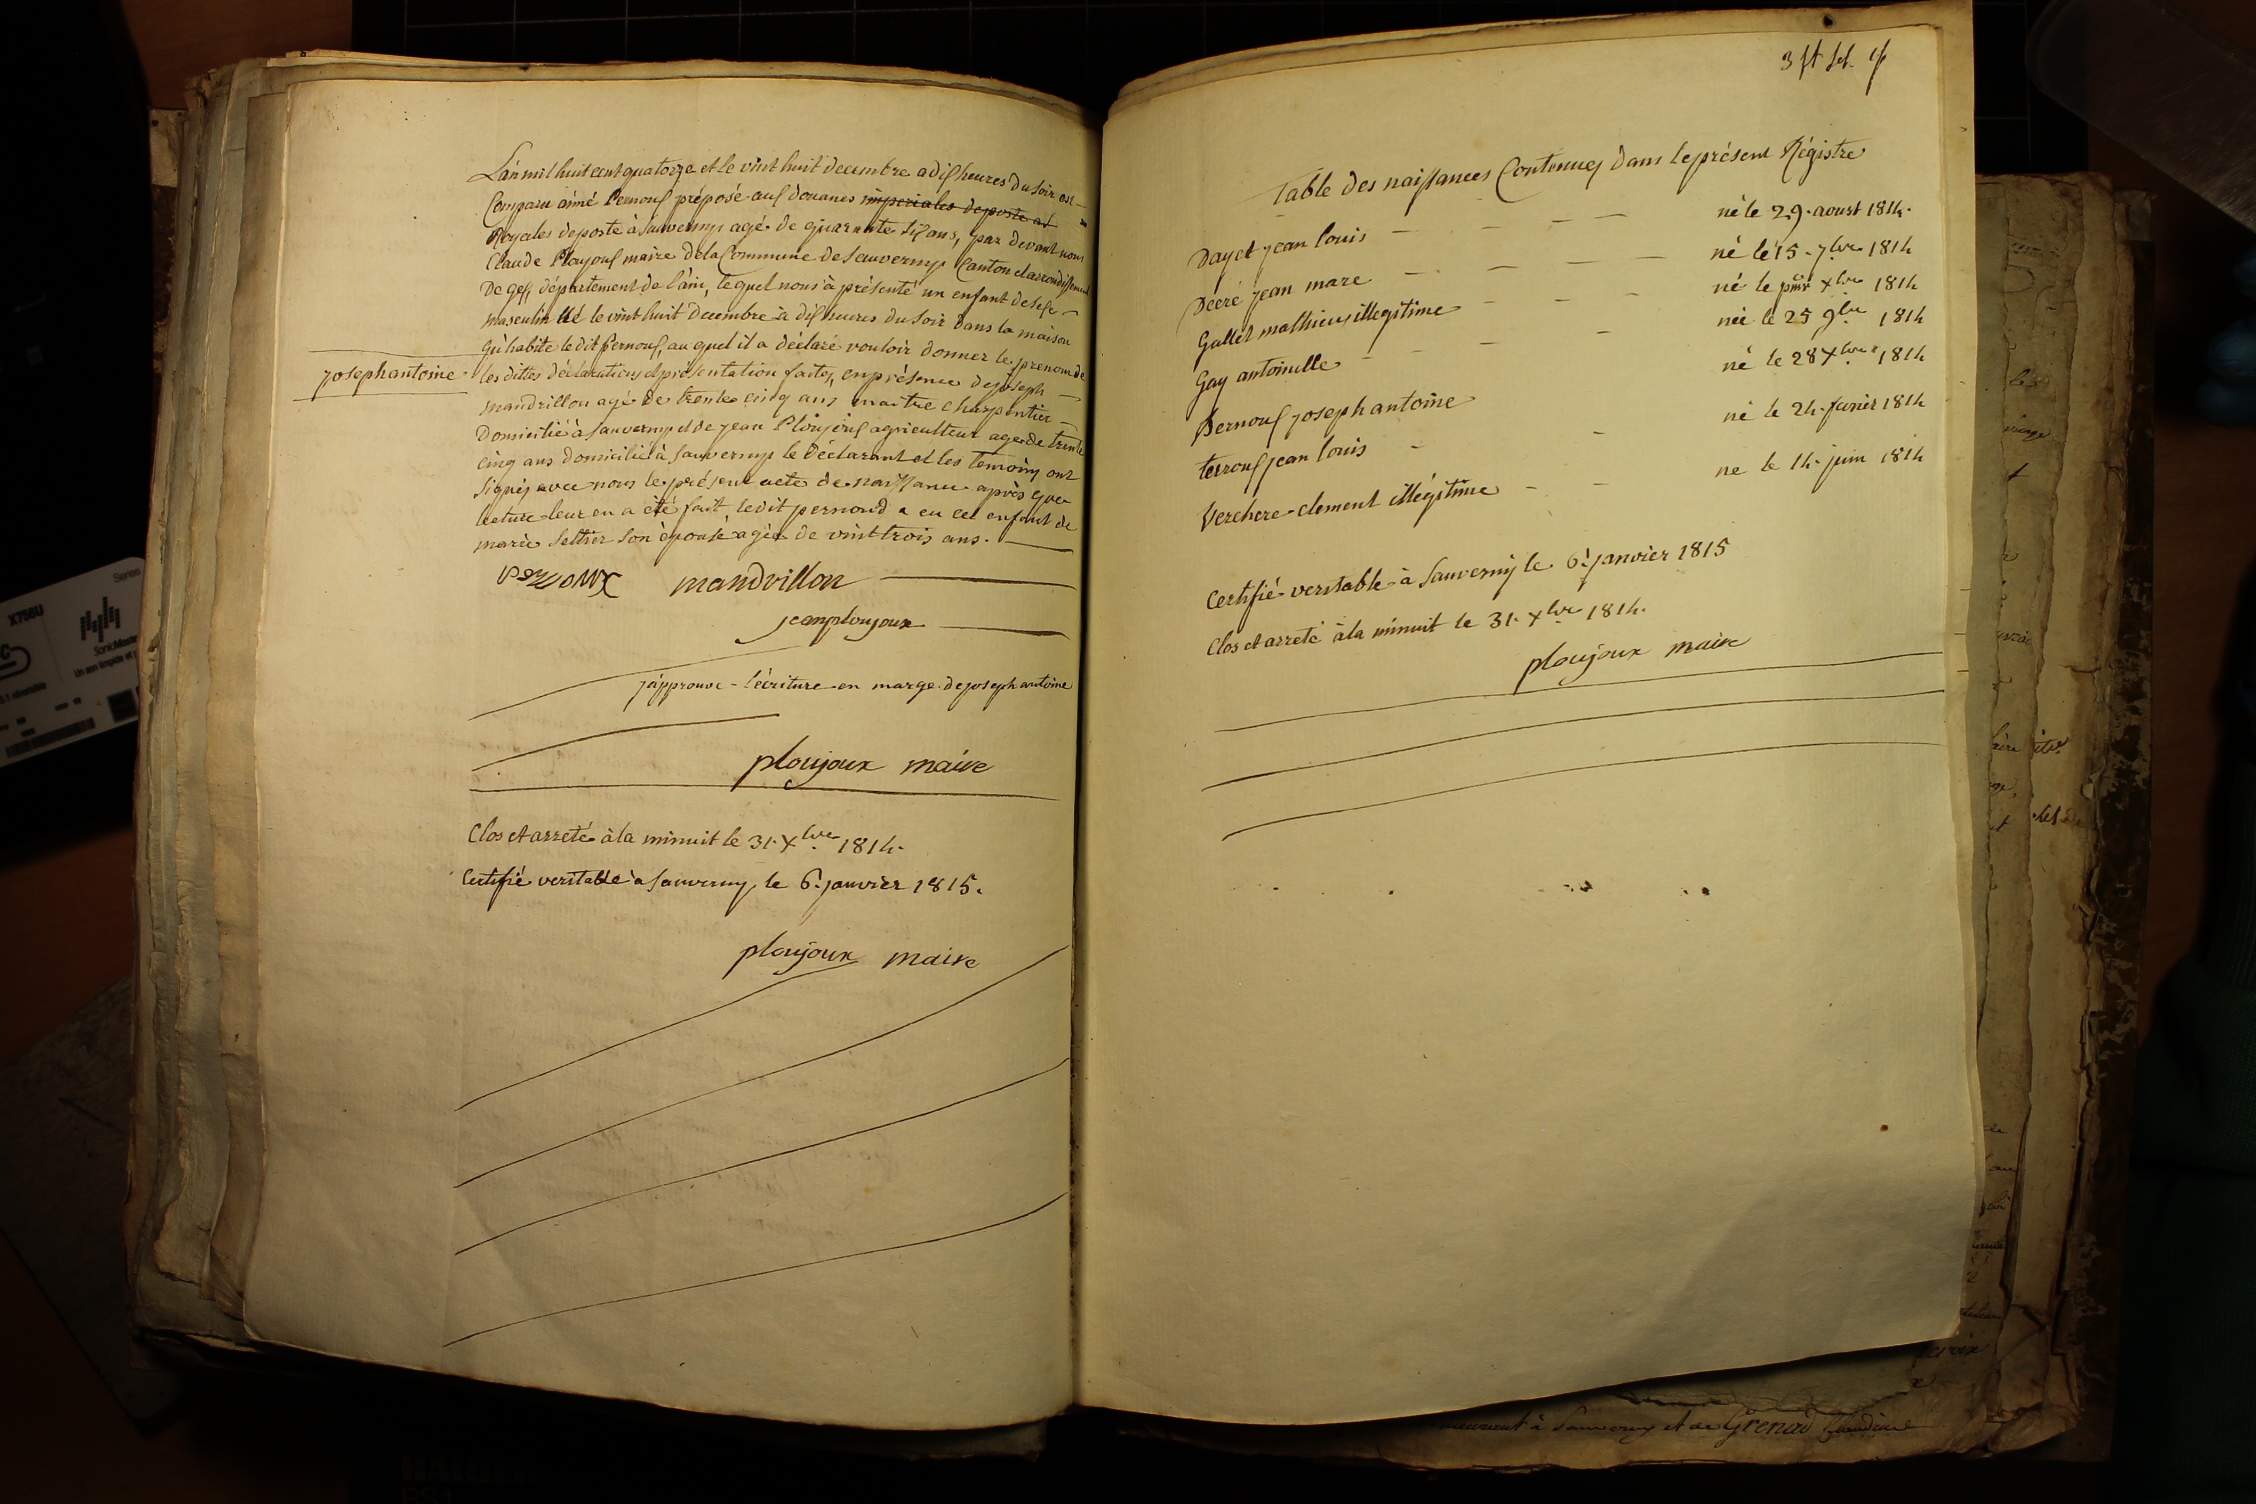 L'an mil huit cent quatorze et le vint huit decembre a dix heures du soir est
Comparu aimé Pernoux préposé aux douanes imperiales deposte at
Royales deposte à Sauverny agé de quarante six ans, par devant nous
Claude Ploujoux maire de la Commune de Sauverny Canton et arrondissement
De gex, département de l'ain, lequel nous à présenté un enfant de sexe
masculin né le vint huit Decembre à dix heures du soir dans la maison
qu'habite le dit Pernoux, au quel il a déclaré vouloir donner le prenom de
joseph antoine
les dittes déclarations et présentation faites, en présence de joseph
mandrillon agé de trente cinq ans maitre charpentier
Domicilié à Sauverny et de jean Ploujoux agriculteur age de trente
cinq ans domicilié à Sauverny le Déclarant et les temoins ont
signés avec nous le présent acte de naissance après que
lecture leur en a été fait, ledit pernoud a eu cet enfant de
marie Seltier son épouse agée de vint trois ans.
Pernoux mandrillon
jean ploujoux
j'approuve l'écriture en marge de joseph antoine
ploujoux maire
Clos et arreté à la minuit le 31. Xbre 1814.
Certifié veritable à Sauverny, le 6. janvier 1815.
ploujoux maire
Table des naissances Contenues dans le présent Régistre
Dayet jean louis né le 29. aoust 1814.
Décré jean marc né le 15. 7bre 1814
Gallet mathieu illegitime né le pmier Xbre 1814
Gay antoinette née le 25 9bre 1814
Pernoux joseph antoine né le 28 Xbre 1814
terroux jean louis né le 24. fevrier 1814
Verchere clement illégitime ne le 14. juin 1814
Certifié veritable à Sauverny le 6. janvier 1815
Clos et arreté à la minuit le 31. Xbre 1814.
ploujoux maire
X756U
SonicMaster
à Sauverny et de Grenad